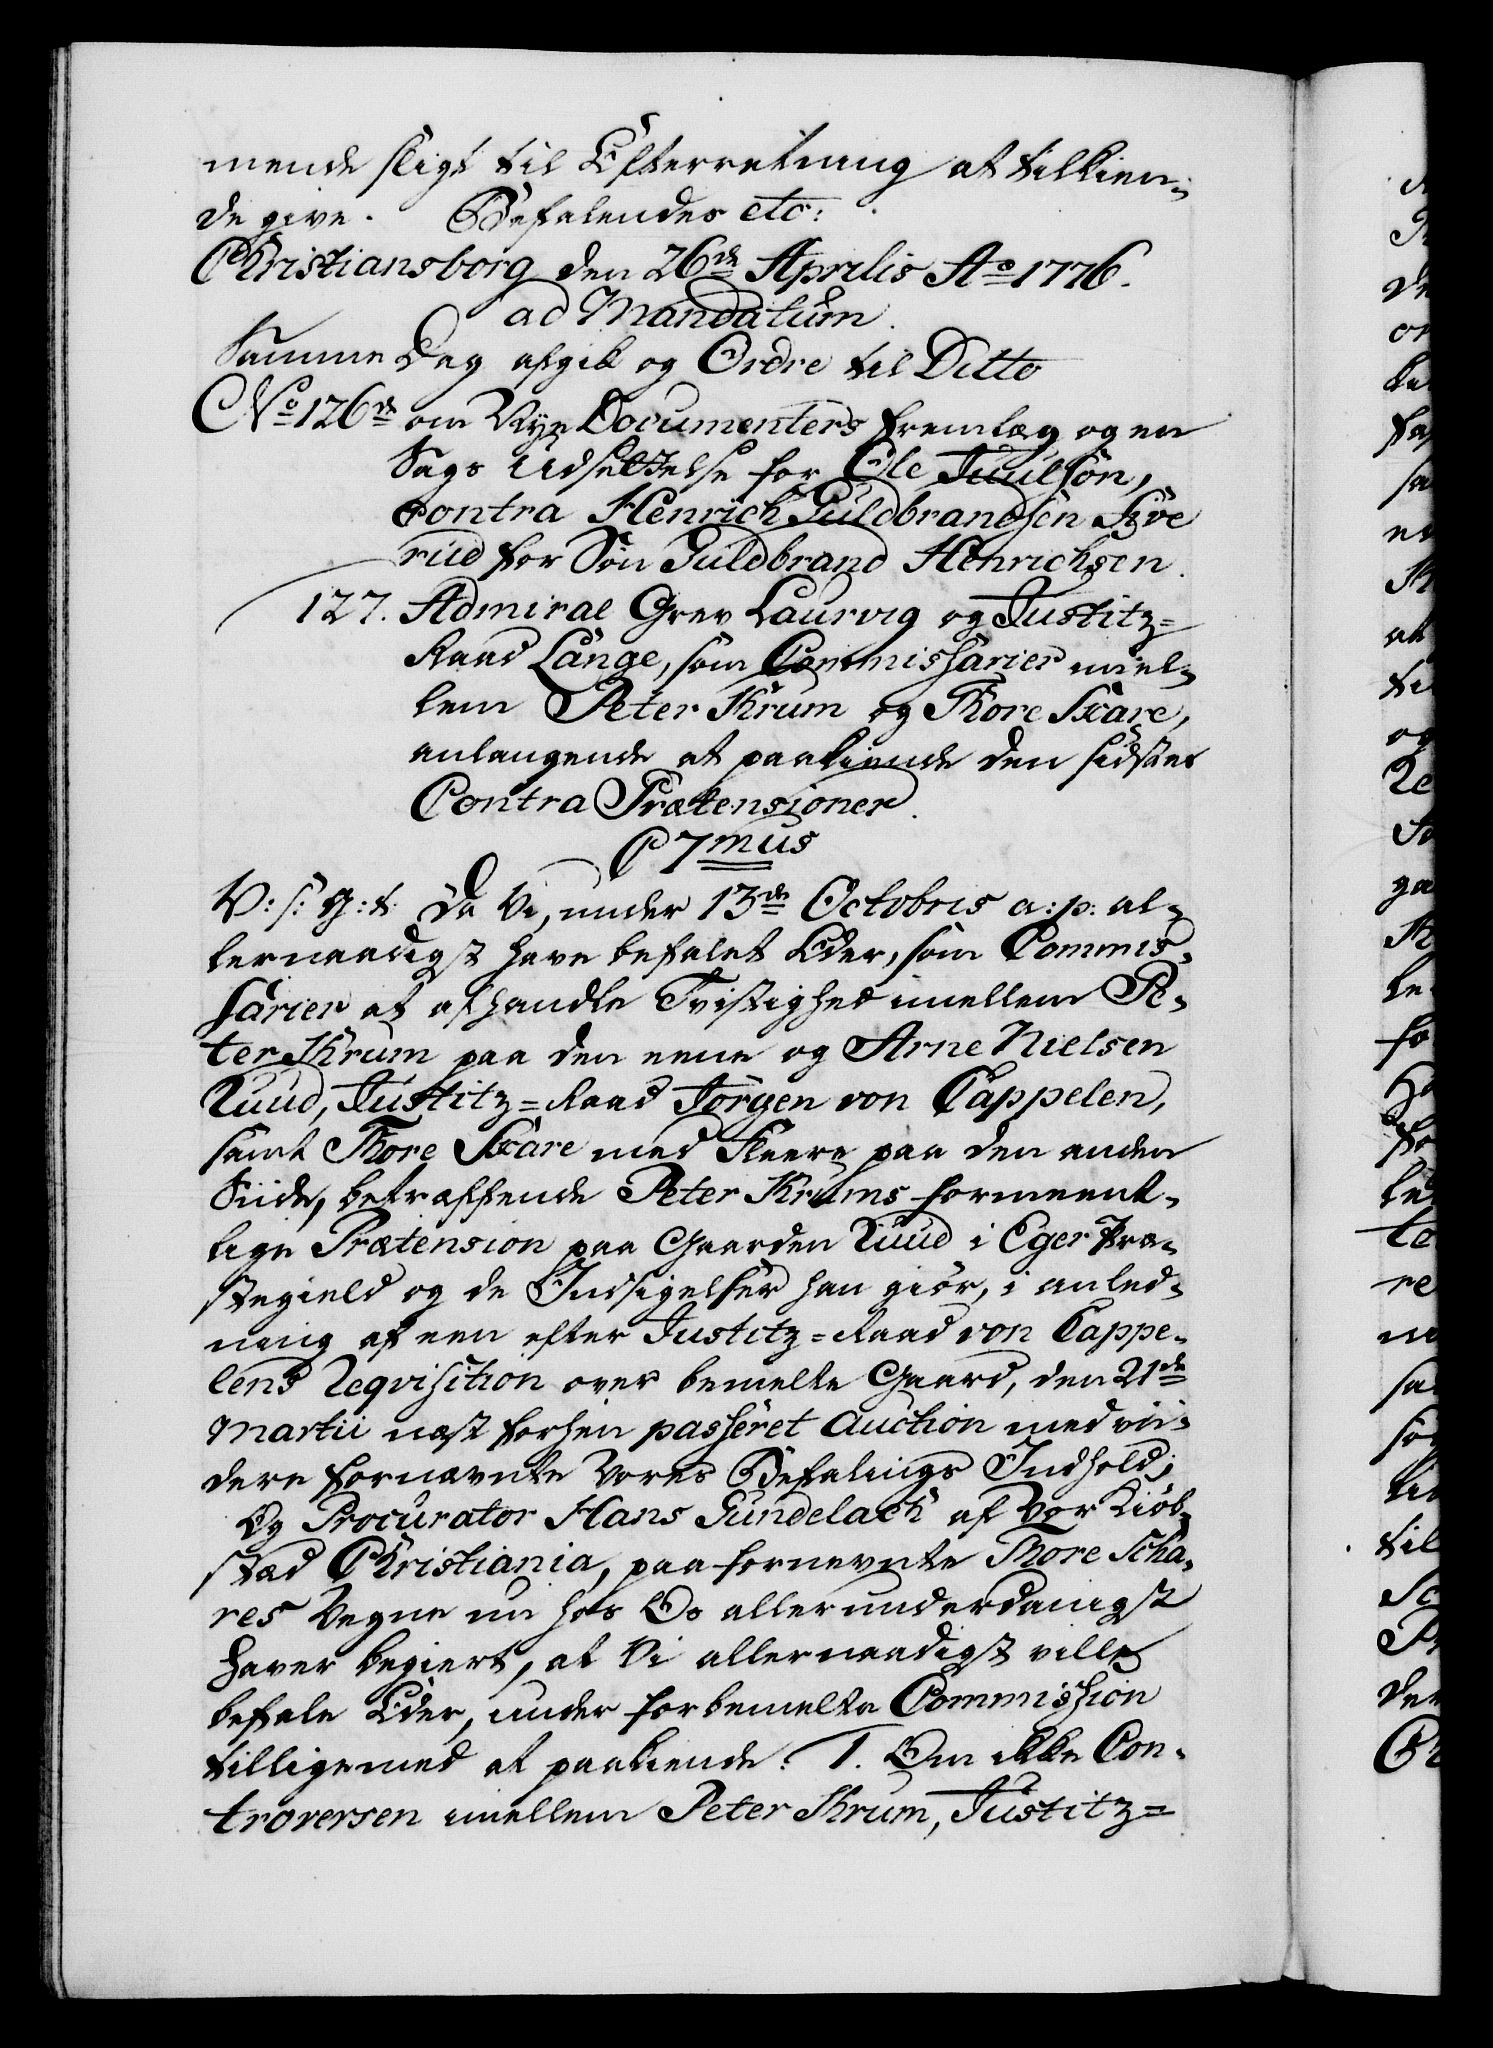 mende sligt til Efterretning at tilkien-
de give. Befalendes etc:
Christiansborg den 26de Aprilis Ao 1776.
ad Mandatum.
Samme Dag afgik og Ordre til Ditto
No 126de om Nye Documenters Fremlæg og en
Sags Udsettelse for Ole Juulsön,
contra Henrich Guldbrandsen
rud for Sön Guldbrand Henrichsen.
127. Admiral Grev Laurvig og Justitz=
Raad Lange, som Commissarier miel-
lem Peter Krum og Thore Skare,
anlangende at paakiende den sidstes
Contra Prætensioner.
C 7mus
V: s: G: t: Da Vi, under 13de Octobris a: p: al-
lernaadigst have befalet Eder, som Commis-
sarier at afhandle Tvistighed imellem Pe-
ter Krum paa den eene og Arne Nielsen
Ruud, Justitz=Raad Jörgen von Cappelen,
samt Thore Skare med Fleere paa den anden
Siide, betræffende Peter Krums formeent-
lige Prætension paa Gaarden Ruud i Eger Præ-
stegield og de Indsigelser han giör, i anled-
ning af een efter Justitz=Raad von Cappe-
lens Reqvisition over bemelte Gaard, den 21de
Martii næst forhen passeret Auction med vii-
dere fornævnte Vores Befalings Indhold;
Og Procurator Hans Gundelach af Vor Kiöb-
stæd Christiania, paa fornevnte Thore Scha-
res Vegne nu hos Os allerunderdanigst
haver begiert, at Vi allernaadigst ville
befale Eder, under forbemelte Commission
tilligemed at paakiende: 1. Om ikke Con-
troversen imellem Peter Krum, Justitz=